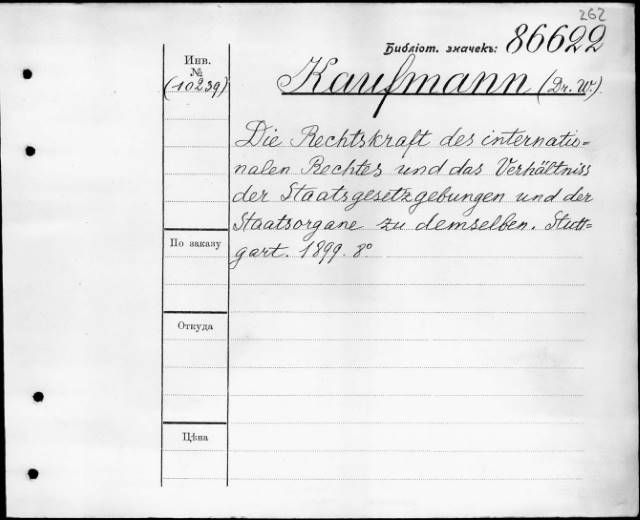 262
Библіот. значекъ: 86622
Инв.
№
(10239)
Kaufmann (Dr. W.).
Die Rechtskraft des internatio-
nalen Rechtes und das Verhältniss
der Staatsgesetzgebungen und der
Staatsorgane zu demselben. Stutt-
gart. 1899. 8°
По заказу
Откуда
Цѣна